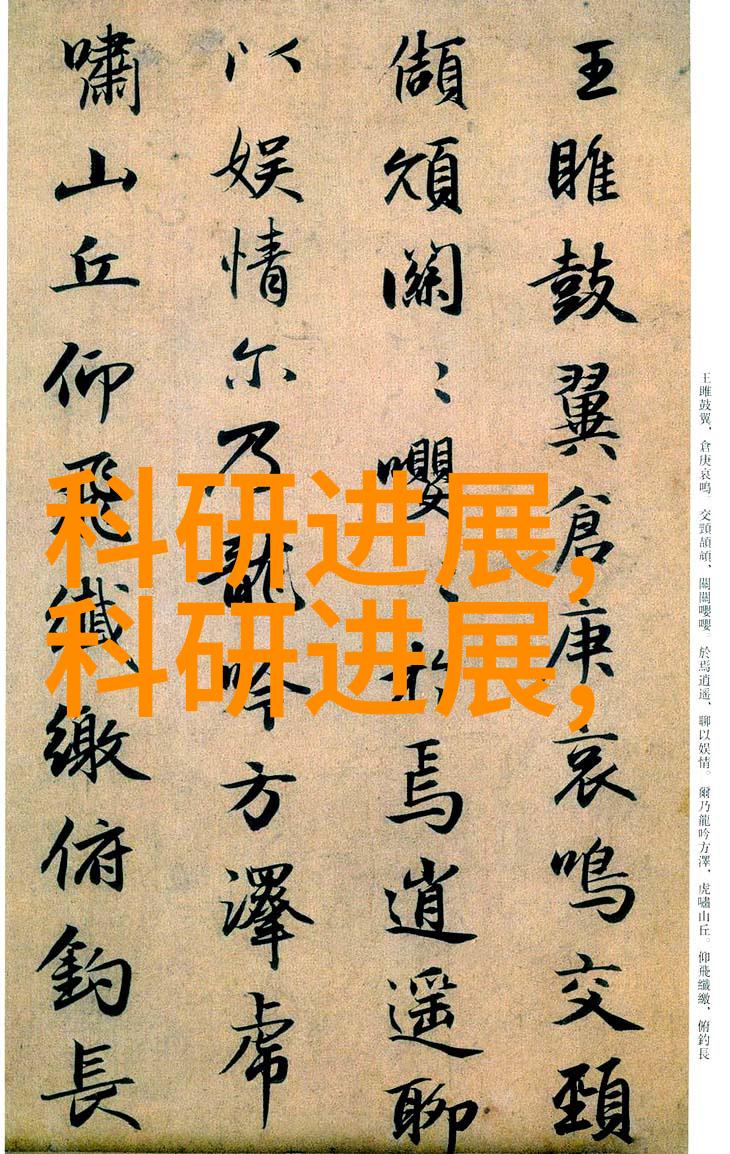 王雎鼓翼，倉庚哀鳴。交頸頡頏，關關嚶嚶。於焉逍遥，聊以娱情。爾乃龍吟方澤，虎嘯山丘。仰飛纖繳，俯釣長
王雎鼓翼倉庚哀鳴交頸
頡頏關〻嚶〻於焉逍遥聊
以娱情尔乃龍吟方澤虎
嘯山丘仰飛纖繳俯釣長
科研进展,
科研进展,